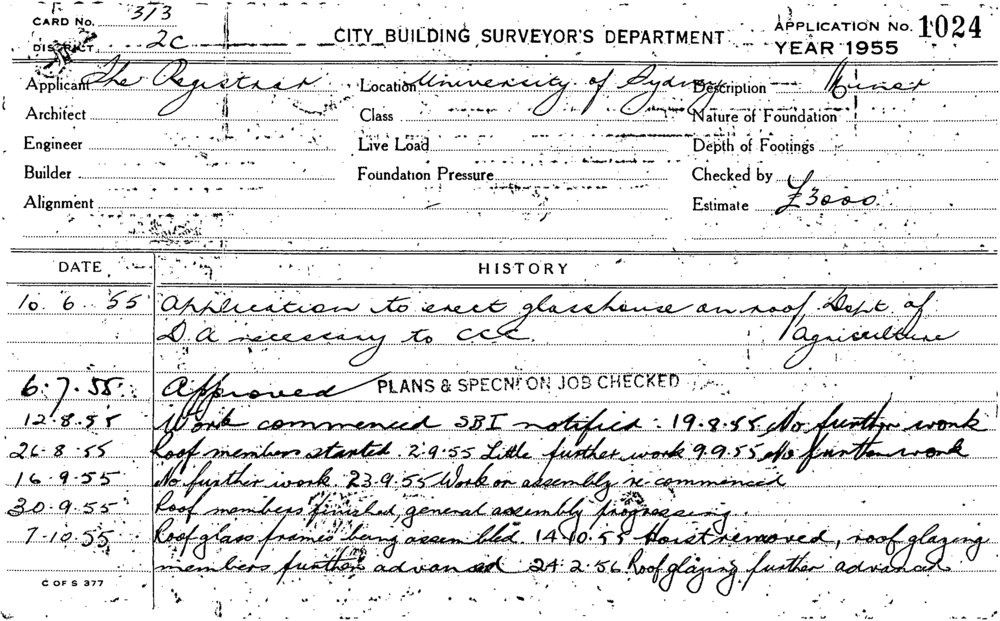 CARD No. 313
DISTRICT 2C
CITY BUILDING SURVEYOR'S DEPARTMENT
APPLICATION No. 1024
YEAR 1955
Applicant The Registrar Location University of Sydney Description
Architect Class Nature of Foundation
Engineer Live Load Depth of Footings
Builder Foundation Pressure Checked by
Alignment Estimate £3000
DATE HISTORY
10. 6. 55 Application to erect glasshouse on roof Dept. of
D A necessary to CCC. Agriculture
6.7.55. Approved PLANS & SPECNS ON JOB CHECKED
12.8.55 Work commenced SBI notified. 19.8.55 No further work
26.8.55 Roof members started. 2.9.55 Little further work 9.9.55 No further work
16.9.55 No further work. 23.9.55 Work on assembly re-commenced
30.9.55 Roof members finished, general assembly progressing.
7.10.55 Roof glass frames being assembled. 14.10.55 Hoist removed, roof glazing
members further advanced 24.2.56 Roof glazing further advanced
C OF S 377